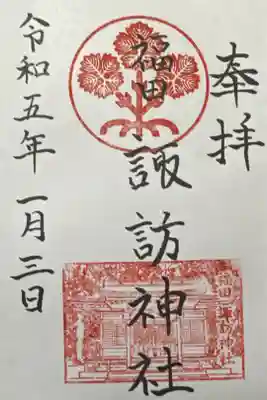 奉拝
福田
諏訪神社
令和五年一月三日